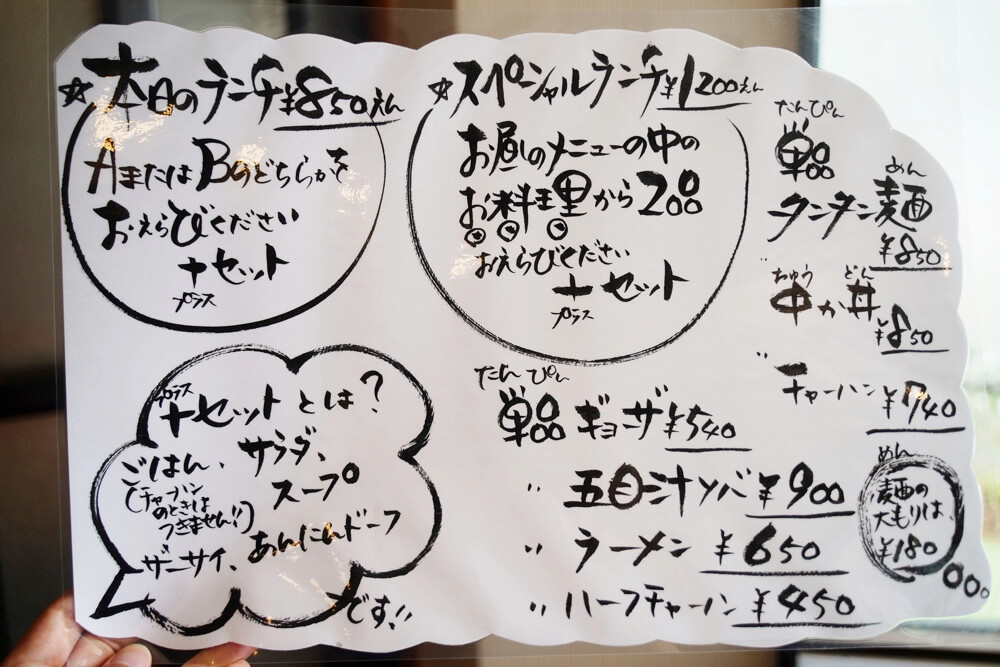 ☆本日のランチ¥850えん
AまたはBのどちらかを
おえらびください
+セット
プラス
☆スペシャルランチ¥1200えん
お昼のメニューの中の
お料理から2品
おえらびください
+セット
プラス
たんぴん
単品
めん
タンタン麺
¥850
ちゅう どん
中か丼
¥850
〃 チャーハン
¥740
プラス
+セットとは?
サラダ、
ごはん、
スープ
(チャーハン
のときは
つきません!!)
ザーサイ、あんにんドーフ
です!!
たんぴん
単品 ギョーザ ¥540
〃 五目汁ソバ ¥900
〃 ラーメン ¥650
〃 ハーフチャーハン ¥450
めん
麺の
大もりは、
¥180